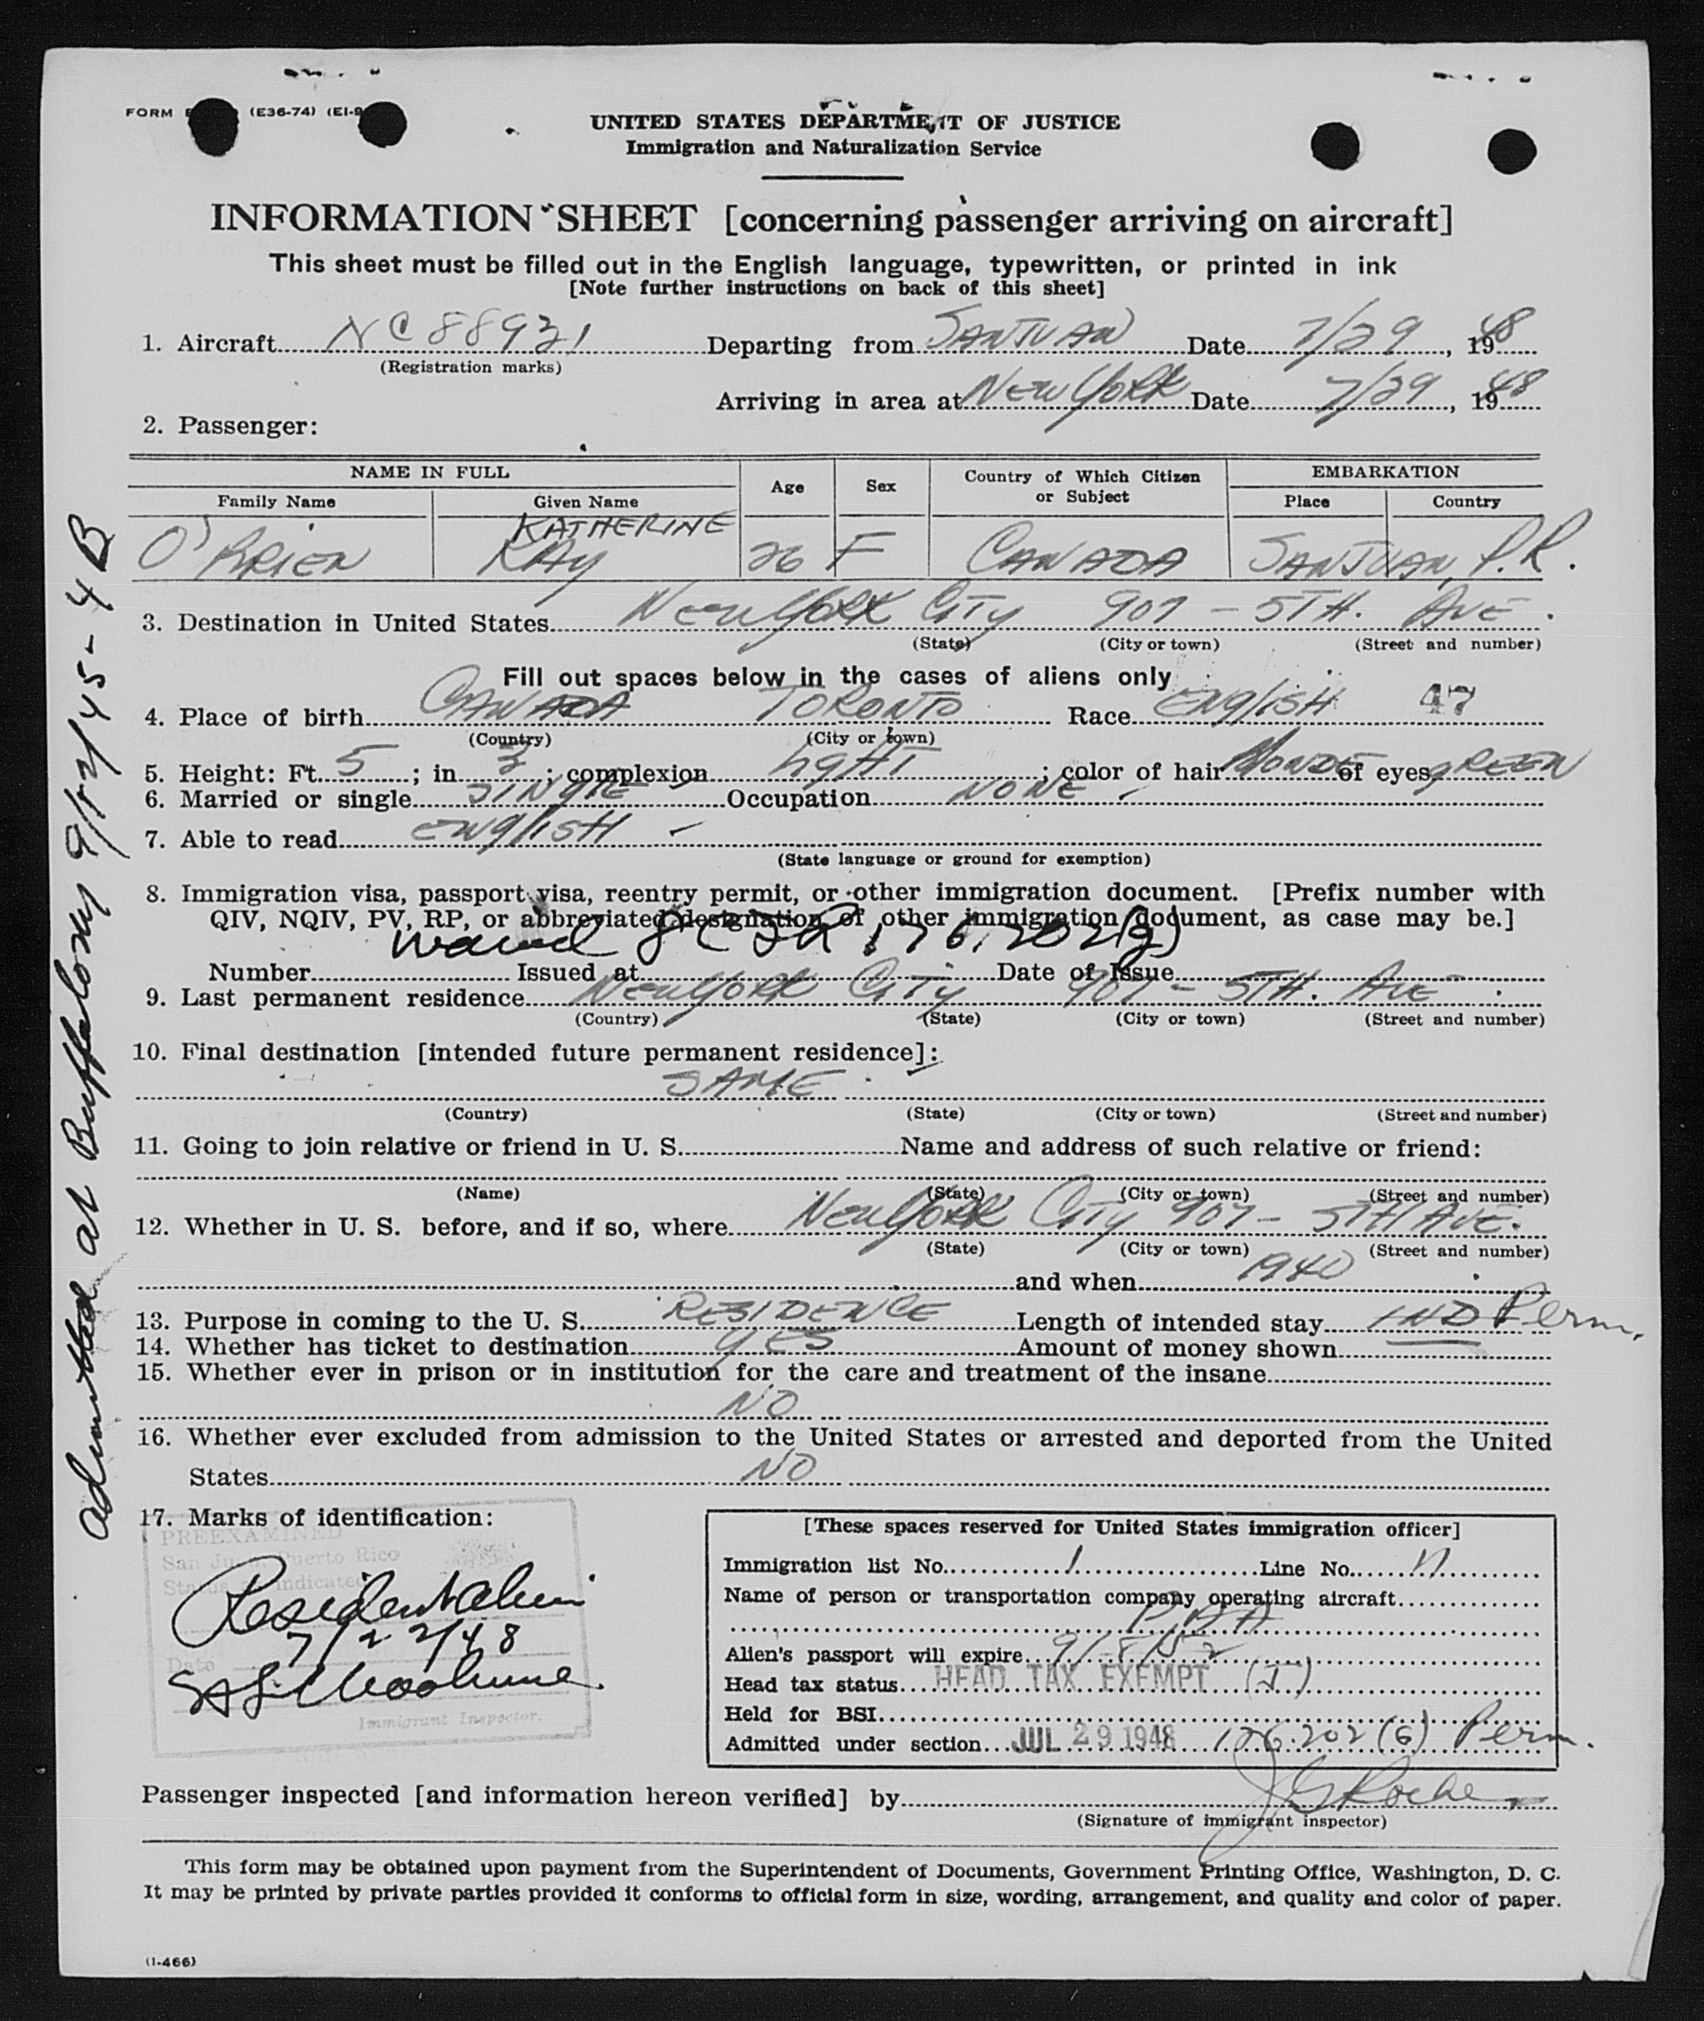 FORM (E36-74) (EI-9
UNITED STATES DEPARTMENT OF JUSTICE
Immigration and Naturalization Service
INFORMATION SHEET [concerning passenger arriving on aircraft]
This sheet must be filled out in the English language, typewritten, or printed in ink
[Note further instructions on back of this sheet]
1. Aircraft NC 88921 Departing from SAN JUAN Date 7/29, 1948
(Registration marks)
Arriving in area at NEW YORK Date 7/29, 1948
2. Passenger:
NAME IN FULL Age Sex Country of Which Citizen or Subject EMBARKATION
Family Name Given Name Place Country
KATHERINE
O'BRIEN KAY 26 F CANADA SAN JUAN, P.R.
3. Destination in United States NEW YORK CITY 907 - 5TH. AVE.
(State) (City or town) (Street and number)
Fill out spaces below in the cases of aliens only
4. Place of birth CANADA TORONTO Race ENGLISH 47
(Country) (City or town)
5. Height: Ft. 5; in. 3; complexion light; color of hair BLONDE of eyes GREEN
6. Married or single SINGLE Occupation NONE
7. Able to read ENGLISH -
(State language or ground for exemption)
8. Immigration visa, passport visa, reentry permit, or other immigration document. [Prefix number with
QIV, NQIV, PV, RP, or abbreviated designation of other immigration document, as case may be.]
Waived 8 CFR 176.202(g)
Number Issued at Date of Issue
9. Last permanent residence NEW YORK CITY 907 - 5TH. AVE.
(Country) (State) (City or town) (Street and number)
10. Final destination [intended future permanent residence]:
SAME
(Country) (State) (City or town) (Street and number)
11. Going to join relative or friend in U. S. Name and address of such relative or friend:
(Name) (State) (City or town) (Street and number)
12. Whether in U. S. before, and if so, where NEW YORK CITY 907 - 5TH AVE.
(State) (City or town) (Street and number)
and when 1940
13. Purpose in coming to the U. S. RESIDENCE Length of intended stay IND Perm.
14. Whether has ticket to destination YES Amount of money shown
15. Whether ever in prison or in institution for the care and treatment of the insane
NO
16. Whether ever excluded from admission to the United States or arrested and deported from the United
States NO
17. Marks of identification:
PREEXAMINED
San Juan, Puerto Rico
Status as indicated
Resident alien
Date 7/22/48
Immigrant Inspector.
[These spaces reserved for United States immigration officer]
Immigration list No. 1 Line No. 11
Name of person or transportation company operating aircraft
PAA
Alien's passport will expire 9/8/52
Head tax status HEAD TAX EXEMPT (I)
Held for BSI
Admitted under section JUL 29 1948 176.202(G) Perm.
Passenger inspected [and information hereon verified] by J G Roche
(Signature of immigrant inspector)
This form may be obtained upon payment from the Superintendent of Documents, Government Printing Office, Washington, D. C.
It may be printed by private parties provided it conforms to official form in size, wording, arrangement, and quality and color of paper.
(I-466)
Admitted at Buffalo ny 9/12/45-4 B